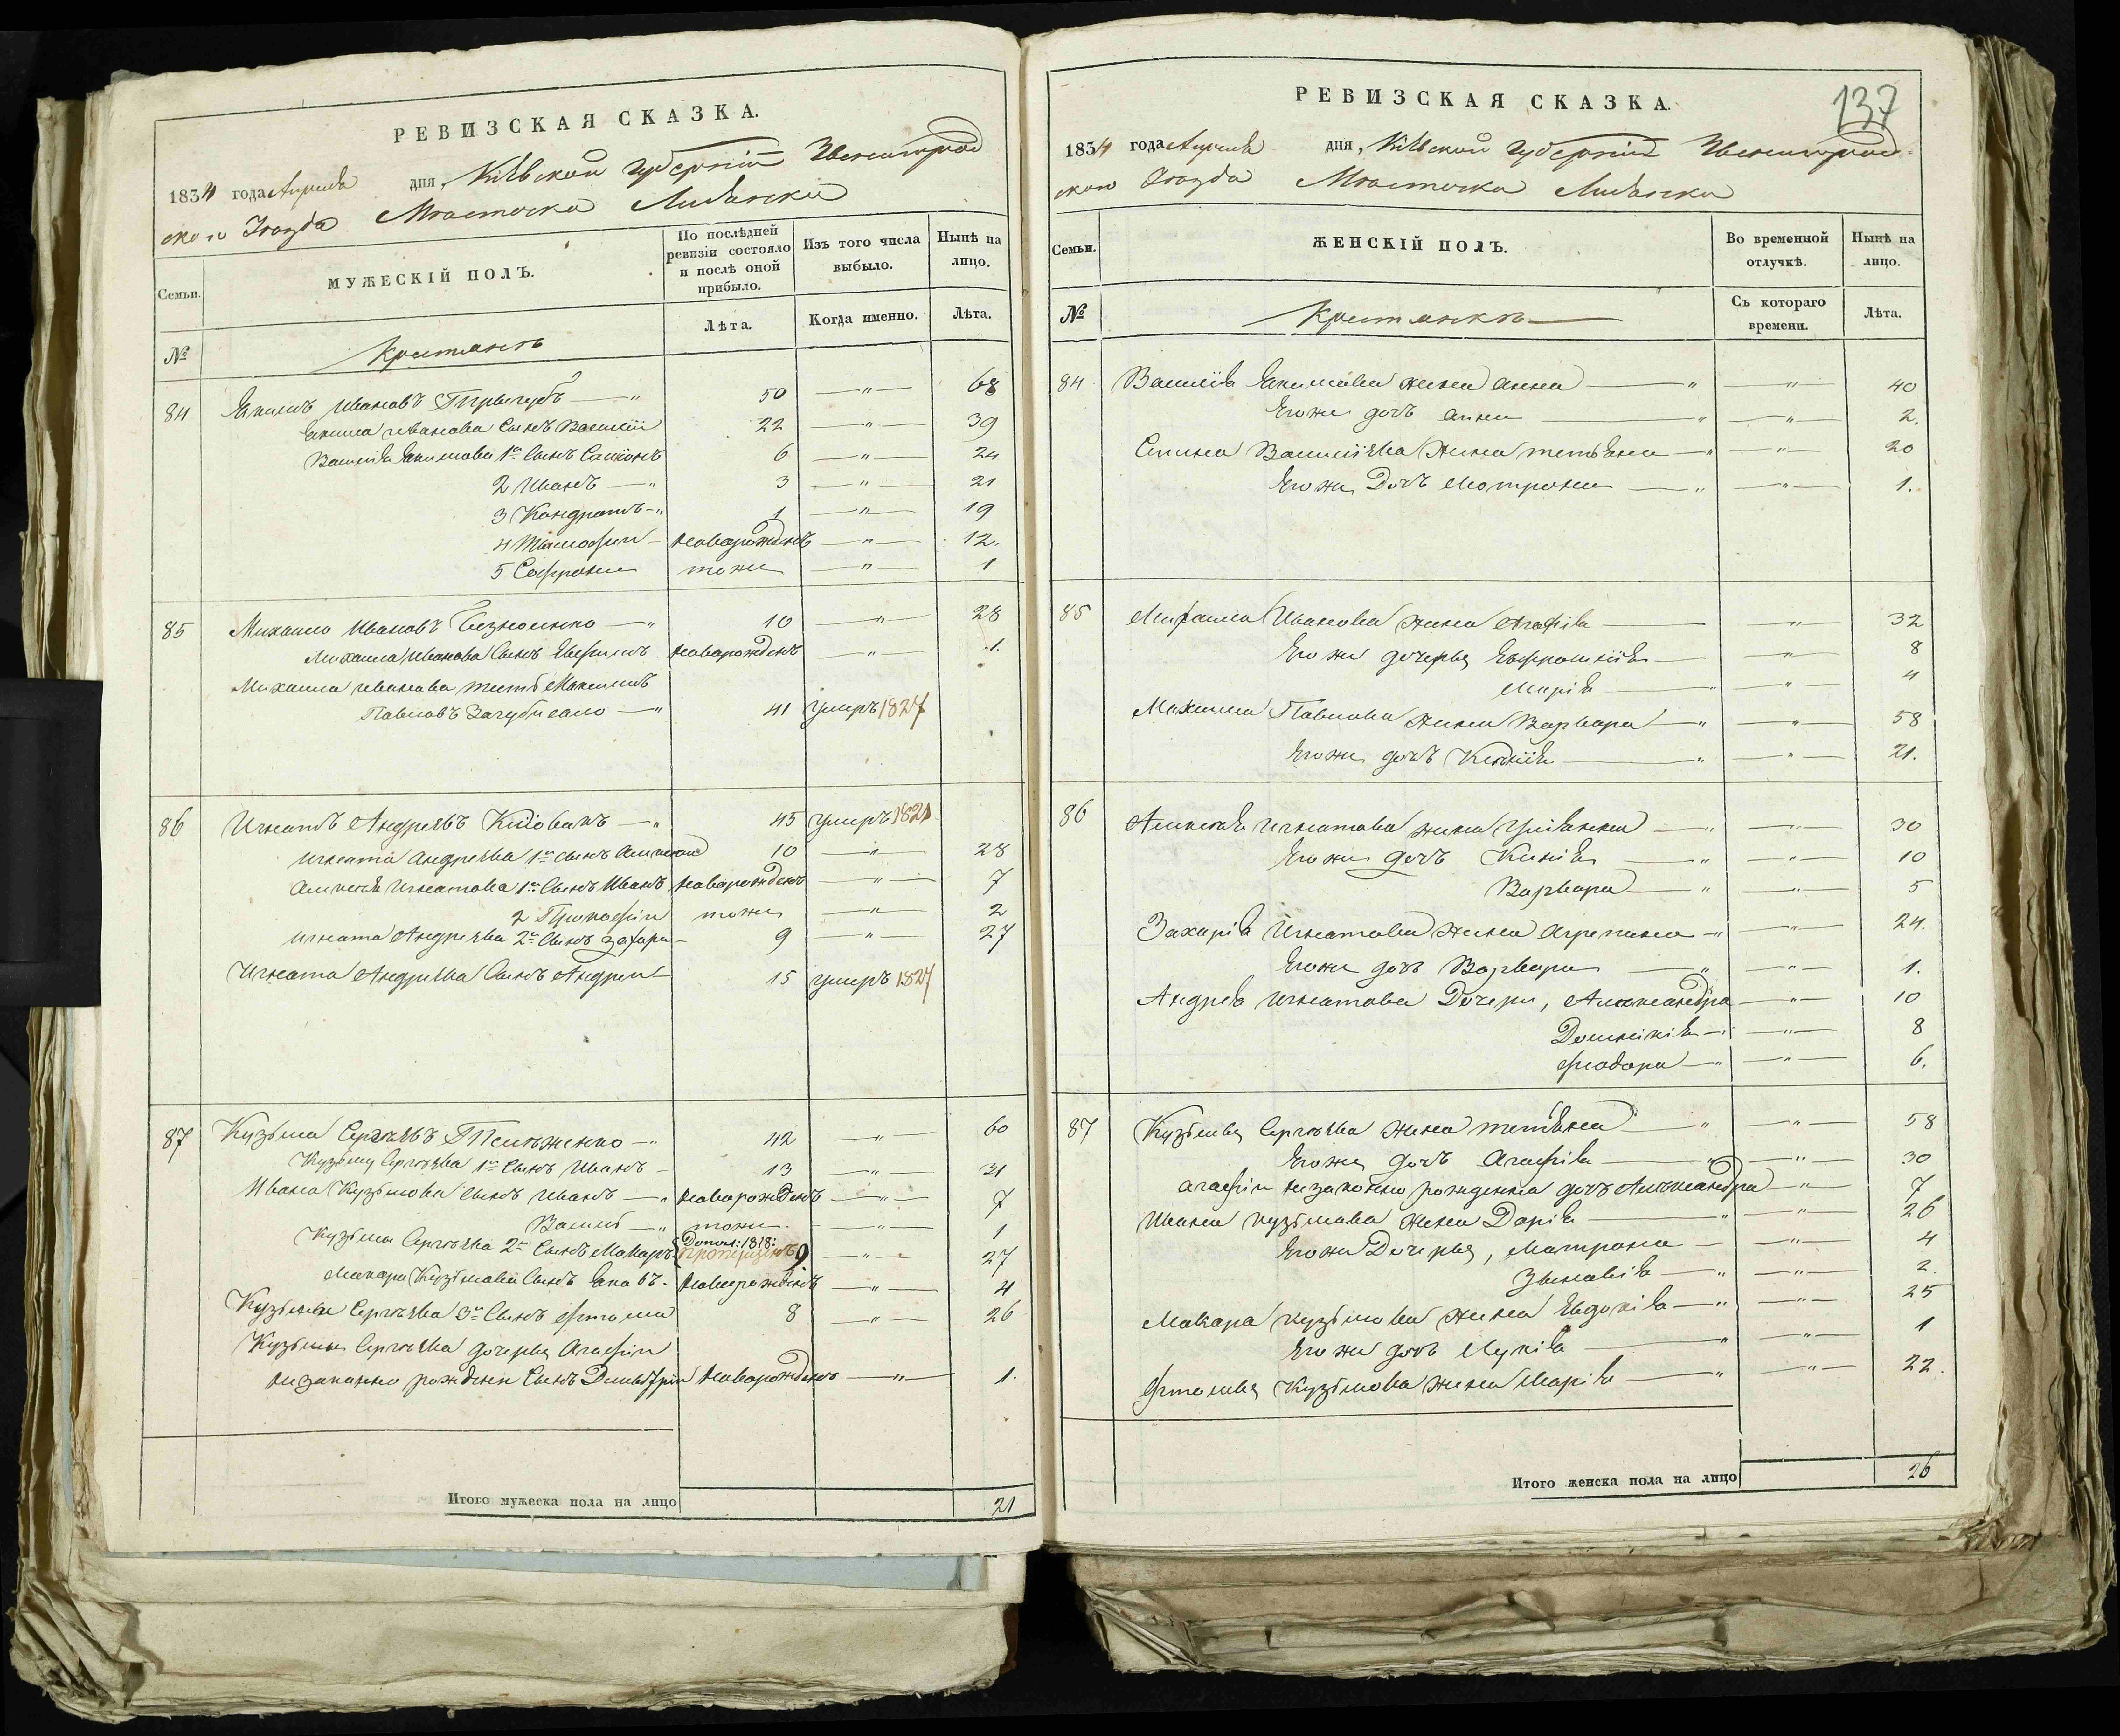 РЕВИЗСКАЯ СКАЗКА.
1834 года Апреля дня, Кіевской губерніи Звенигород
ского Уезда Мѣстечка Лисянки
Семьи.
МУЖЕСКІЙ ПОЛЪ.
По послѣдней ревизіи состояло и послѣ оной прибыло.
Изъ того числа выбыло.
Нынѣ на лицо.
№
Крестьянъ
Лѣта.
Когда именно.
Лѣта.
84 Екимъ Ивановъ 50 — " — 68
Екима Иванова Сынъ Василій 22 — " — 39
Василія Екимова 1й Сынъ Симіонъ 6 — " — 24
2 Иванъ — " 3 — " — 21
3 Кондратъ — " 1 — " — 19
4 Тимофей — новорожденъ — " — 12.
5 Софронъ тоже — " — 1
85 Михайло Ивановъ — " 10 — " — 28
Михаила Иванова Сынъ Евфимъ новорожденъ — " — 1.
Михаила Иванова тесть Максимъ
Павловъ — " 41 умеръ 1827
86 Игнатъ Андреевъ — " 45 умеръ 1821
Игната Андреева 1й Сынъ Алексей 10 — " — 28
Алексея Игнатова 1й Сынъ Иванъ новорожденъ — " — 7
2 Прокофій тоже — " — 2
Игната Андреева 2й Сынъ Захари — 9 — " — 27
Игната Андреева Сынъ Андрей 15 умеръ 1827
87 Кузьма Сергѣевъ — " 42 — " — 60
Кузьмы Сергѣева 1й Сынъ Иванъ — 13 — " — 31
Ивана Кузьмова Сынъ Иванъ — " новорожденъ — " — 7
Василь — " тоже. — " — 1
Допол: 1818:
Кузьмы Сергѣева 2й Сынъ Макаръ пропищенъ 9 — " — 27
Макара Кузьмова Сынъ Яковъ — новорожденъ — " — 4
Кузьмы Сергѣева 3й Сынъ Фтома 8 — " — 26
Кузьмы Сергѣева дочерья Агафіи
незаконно рожденій Сынъ Дмытрій новорожденъ — " — 1.
Итого мужеска пола на лицо 21
137
РЕВИЗСКАЯ СКАЗКА.
1834 года Апреля дня, Кіевской губерніи Звенигород
ского Уезда Мѣстечка Лисянки
Семьи.
ЖЕНСКІЙ ПОЛЪ.
Во временной отлучкѣ.
Нынѣ на лицо.
№
Крестьянкъ
Съ котораго времени.
Лѣта.
84 Василія Екимова жена Анна — " — " — 40
Его же дочъ Анна — " — " — 2.
Симіона Василіева жена Тетьяна — " — " — 20
Его же Дочъ Мотрона — " — " — 1.
85 Михаила Иванова жена Агафія — " — 32
Его же дочерья Ефросинія — " — 8
Марія — " — " — 4
Максима Павлова жена Варвара — " — " — 58
Его же дочъ — " — " — 21.
86 Алексея Игнатова жена Уліянна — " — " — 30
Его же дочъ — " — " — 10
Варвара — " — " — 5
Захарія Игнатова жена Агрепина — " — " — 24.
Его же дочъ Варвара — " — " — 1.
Андрея Игнатова Дочери, Александра — " — 10
Домникія — " — " — 8
Феодора — " — " — 6.
87 Кузьмы Сергѣева жена Тетьяна — " — " — 58
Его же дочъ Агафія — " — " — 30
Агафіи незаконно рожденна дочъ Александра — " — 7
Ивана Кузьмова жена Дарія — " — " — 26
Его же Дочерья, Матрона — " — 4
Зыновія — " — " — 2.
Макара Кузьмова жена Евдокія — " — " — 25
Его же дочъ Лукія — " — " — 1
Фтомы Кузьмова жена Марія — " — " — 22.
Итого женска пола на лицо 26